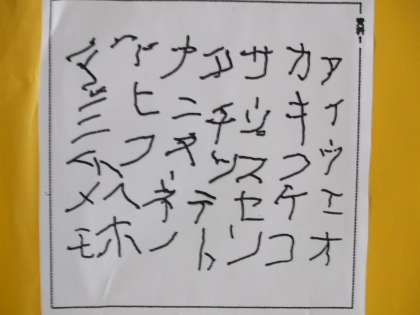 アイウエオ
カキクケコ
サシスセソ
タチツテト
ナニヌネノ
ハヒフヘホ
マミムメモ